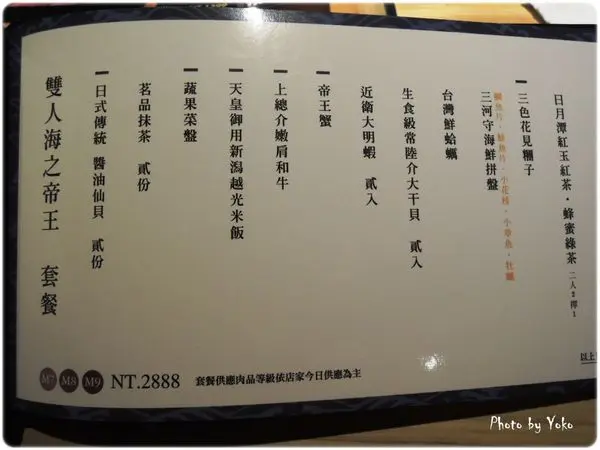 雙人海之帝王 套餐
日式傳統 醬油仙貝 貳份
茗品抹茶 貳份
蔬果菜盤
天皇御用新潟越光米飯
上總介嫩肩和牛
帝王蟹
近衛大明蝦 貳入
生食級常陸介大干貝 貳入
台灣鮮蛤蠣
三河守海鮮拼盤
鯛魚片、鮭魚片、小花枝、小章魚、牡蠣
三色花見糰子
日月潭紅玉紅茶・蜂蜜綠茶 二人2擇1
M7 M8 M9 NT.2888 套餐供應肉品等級依店家今日供應為主
以上
Photo by Yoko